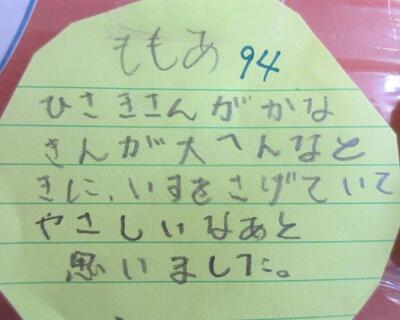 ももあ 94
ひさきさんがかな
さんが大へんなと
きに、いすをさげていて
やさしいなあと
思いました。